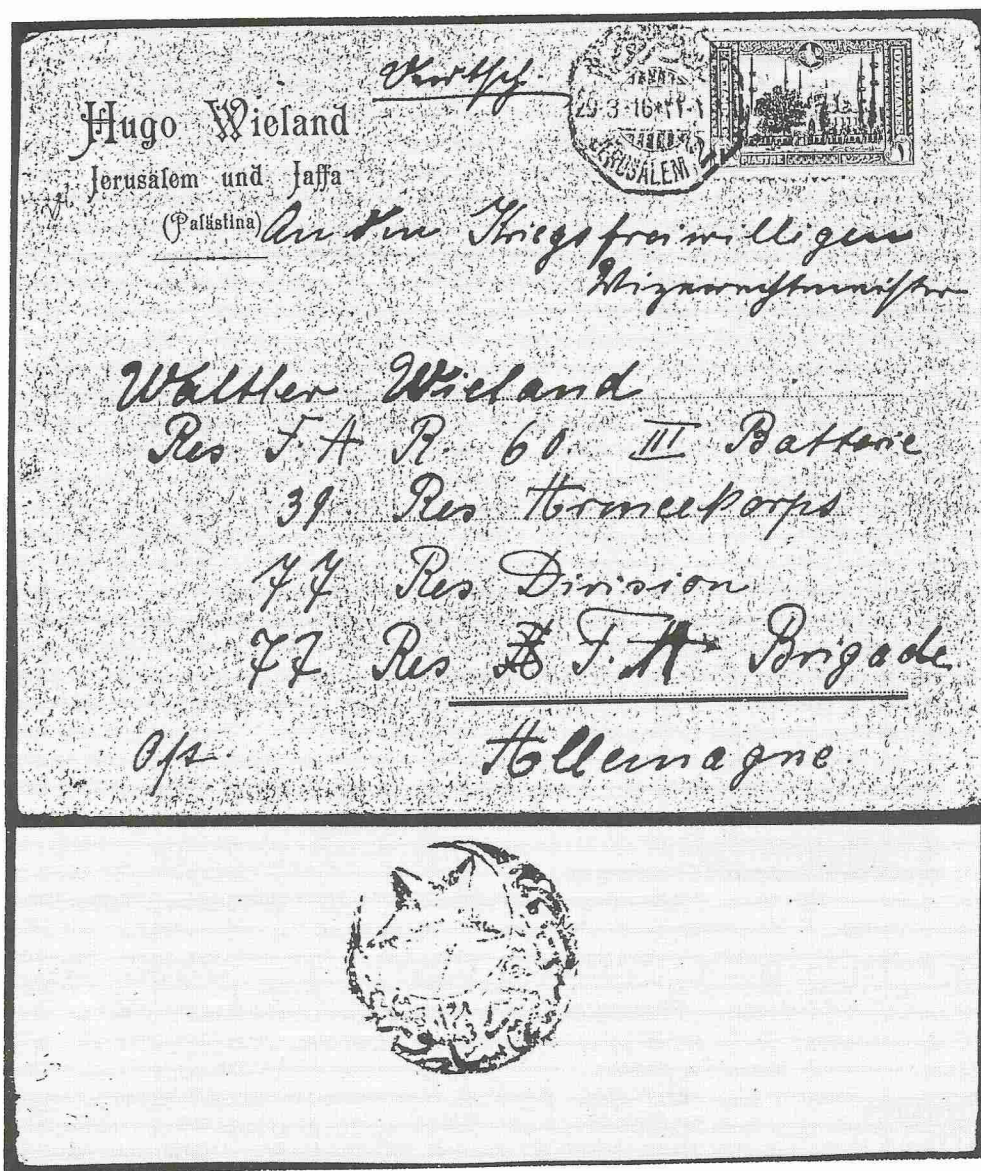 Deutsch.
Hugo Wieland
Jerusalem und Jaffa
(Palästina)
29-3-16 * ٢٢-١
JERUSALEM 2
PIASTRE
١
An den Kriegsfreiwilligen
Vizewachtmeister
Walther Wieland
Res. F A R. 60. III Batterie
39. Res Armeekorps
77 Res Division
77 Res F. A Brigade
Allemagne